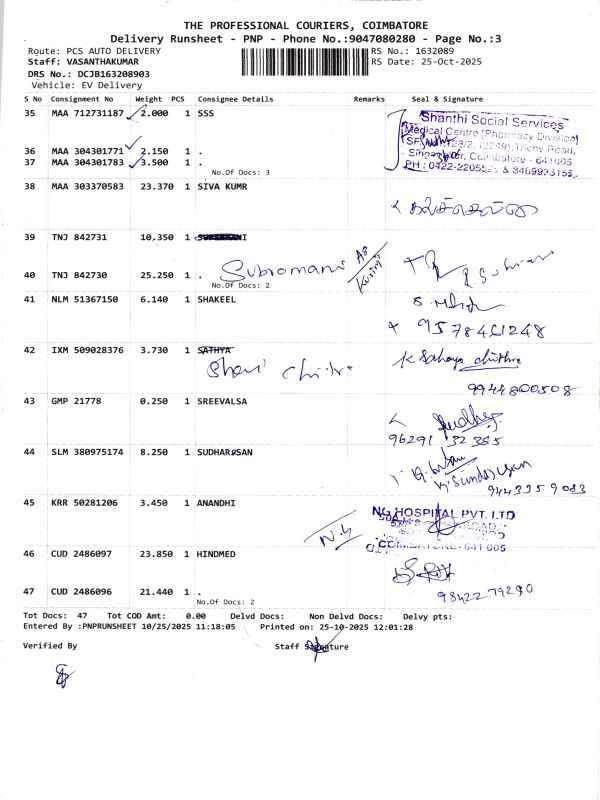 THE PROFESSIONAL COURIERS, COIMBATORE
Delivery Runsheet - PNP - Phone No.:9047080280 - Page No.:3
Route: PCS AUTO DELIVERY
RS No.: 1632089
Staff: VASANTHAKUMAR
RS Date: 25-Oct-2025
DRS No.: DCJB163208903
Vehicle: EV Delivery
S No Consignment No Weight PCS Consignee Details Remarks Seal & Signature
35 MAA 712731187 2.000 1 SSS
Shanthi Social Services
Medical Centre (Pharmacy Division)
Trichy Road,
Coimbatore - 641005
36 MAA 304301771 2.150 1 .
37 MAA 304301783 3.500 1 .
No.Of Docs: 3
38 MAA 303370583 23.370 1 SIVA KUMR
39 TNJ 842731 10,350 1
40 TNJ 842730 25.250 1 . Subromani
No.Of Docs: 2
41 NLM 51367150 6.140 1 SHAKEEL
42 IXM 509028376 3.730 1 SATHYA
K Sahaya chithra
9944800508
43 GMP 21778 0.250 1 SREEVALSA
96291 32385
44 SLM 380975174 8.250 1 SUDHARSAN
45 KRR 50281206 3.450 1 ANANDHI
NG HOSPITAL PVT. LTD
COIMBATORE- 641 005
46 CUD 2486097 23.850 1 HINDMED
47 CUD 2486096 21.440 1 .
No.Of Docs: 2
98422 79290
Tot Docs: 47 Tot COD Amt: 0.00 Delvd Docs: Non Delvd Docs: Delvy pts:
Entered By :PNPRUNSHEET 10/25/2025 11:18:05 Printed on: 25-10-2025 12:01:28
Verified By Staff Signature